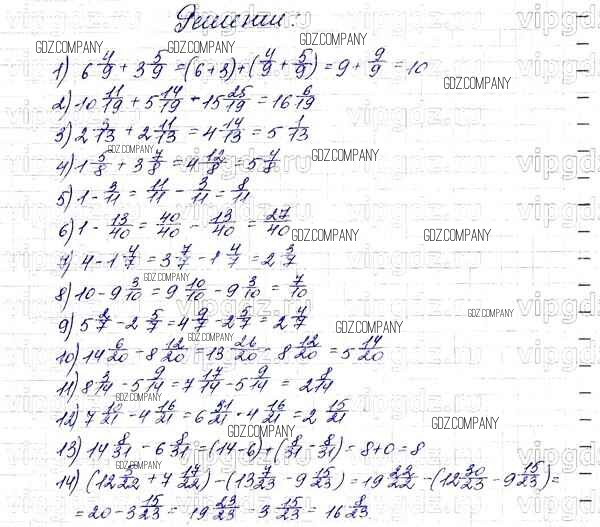 Решении:
1) 6 4/9 + 3 5/9 = (6+3) + (4/9 + 5/9) = 9 + 9/9 = 10
2) 10 11/19 + 5 14/19 = 15 25/19 = 16 6/19
3) 2 3/13 + 2 11/13 = 4 14/13 = 5 1/13
4) 1 5/8 + 3 7/8 = 4 12/8 = 5 4/8
5) 1 - 3/11 = 11/11 - 3/11 = 8/11
6) 1 - 13/40 = 40/40 - 13/40 = 27/40
7) 4 - 1 4/7 = 3 7/7 - 1 4/7 = 2 3/7
8) 10 - 9 3/10 = 9 10/10 - 9 3/10 = 7/10
9) 5 2/7 - 2 5/7 = 4 9/7 - 2 5/7 = 2 4/7
10) 14 6/20 - 8 12/20 = 13 26/20 - 8 12/20 = 5 14/20
11) 8 3/14 - 5 9/14 = 7 17/14 - 5 9/14 = 2 8/14
12) 7 10/21 - 4 16/21 = 6 31/21 - 4 16/21 = 2 15/21
13) 14 8/31 - 6 8/31 = (14-6) + (8/31 - 8/31) = 8+0 = 8
14) (12 3/22 + 7 17/22) - (13 7/23 - 9 15/23) = 19 22/22 - (12 30/23 - 9 15/23) =
= 20 - 3 15/23 = 19 23/23 - 3 15/23 = 16 8/23
GDZ.COMPANY
vipgdz.ru